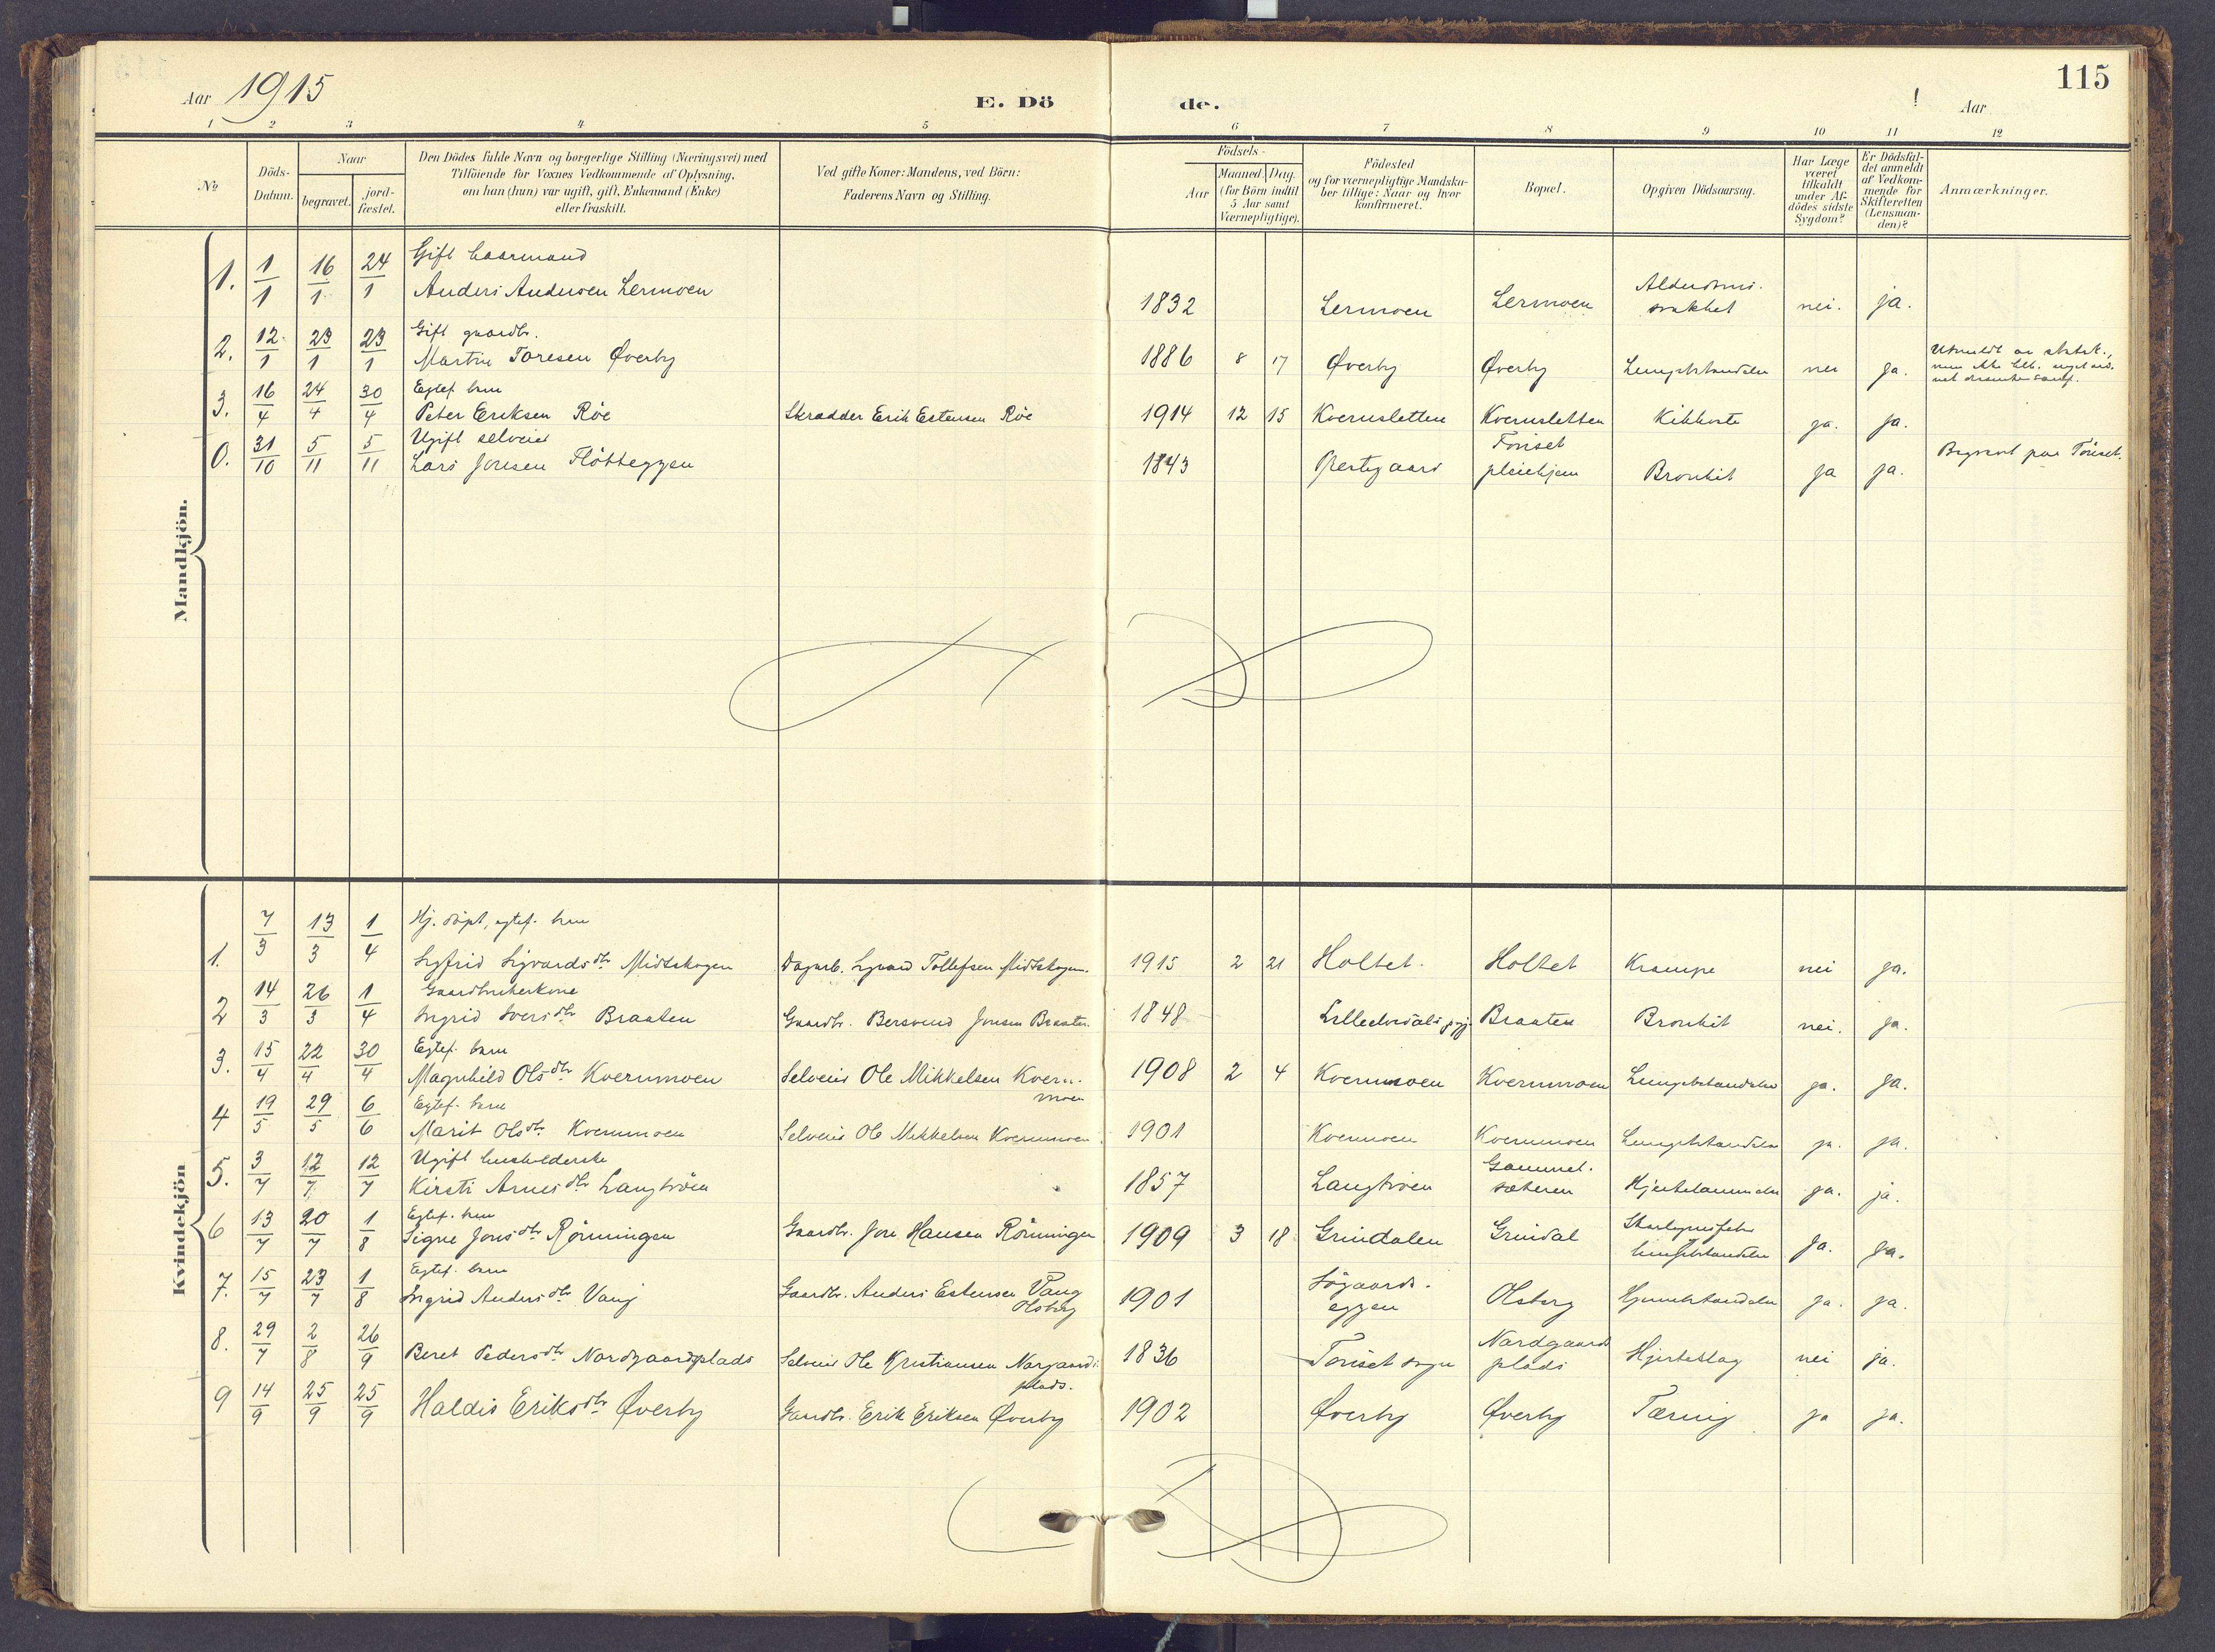 115
Aar 1915
E. Dö
de.
Aar
1 2 3 4 5 6 7 8 9 10 11 12
No
Döds-Datum.
Naar
begravet.
jord-fæstet.
Den Dödes fulde Navn og borgerlige Stilling (Næringsvei) med
Tilföiende for Voxnes Vedkommende af Oplysning,
om han (hun) var ugift, gift, Enkemand (Enke)
eller fraskilt.
Ved gifte Koner: Mandens, ved Börn:
Faderens Navn og Stilling.
Födsels-
Aar
Maaned. Dag.
(for Börn indtil
5 Aar samt
Værnepligtige).
Födested
og for værnepligtige Mandska-
ber tillige: Naar og hvor
konfirmeret.
Bopæl.
Opgiven Dödsaarsag.
Har Læge
været
tilkaldt
under Af-
dödes sidste
Sygdom?
Er Dödsfal-
det anmeldt
af Vedkom-
mende for
Skifteretten
(Lensman-
den)?
Anmærkninger.
Mandkjön.
Gift
1. 1/1 16/1 24/1 Anders Andersen Lermoen 1832 Lermoen Lermoen Alderdoms-
svakhet nei. ja.
Gift gaardbr.
2. 12/1 23/1 23/1 Martin Toresen Øverby 1886 8 17 Øverby Øverby Lungebetændelse nei ja.
Egtef. barn
3. 16/4 24/4 30/4 Peter Eriksen Röe Skrædder Erik Estensen Röe 1914 12 15 Kvernsletten Kvernsletten Kikhoste ja. ja.
Ugift selveier
0. 31/10 5/11 5/11 Lars Jonsen Flötteggen 1843 Tönset
pleiehjem Bronkit ja ja. Begravet paa Tönset.
Kvindekjön
Hj. döpt, egtef. barn
1. 7/3 13/3 1/4 Sigfrid Sigvardsdtr Midtskogen Dagarb. Sigvard Tollefsen Midtskogen. 1915 2 21 Holtet. Holtet Krampe nei ja.
Gaardbrukerkone
2 14/3 26/3 1/4 Ingrid Iversdtr Braaten Gaardbr. Bersvend Jonsen Braaten. 1848 Lilleelvedals prgj. Braaten Bronkit nei. ja.
Egtef. barn
3. 15/4 22/4 30/4 Magnhild Olsdtr Kvernmoen Selveier Ole Mikkelsen Kvern-
moen 1908 2 4 Kvernmoen Kvernmoen Lungebetændelse ja. ja.
Egtef. barn
4 19/5 29/5 6/6 Marit Olsdtr Kvernmoen Selveier Ole Mikkelsen Kvernmoen 1901 Kvernmoen Kvernmoen Lungebetændelse ja. ja.
Ugift husholderske
5. 3/7 12/7 12/7 Kirsti Arnesdtr Langtröen 1857 Langtröen Gammel-
sæteren Hjertelammelse ja. ja.
Egtef. barn
6 13/7 20/7 1/8 Signe Jonsdtr Rönningen Gaardbr. Jon Hansen Rönningen 1909 3 18 Grindalen Grindal Skarlagensfeber
lungebetændelse ja. ja.
Egtef. barn
7. 15/7 23/7 1/8 Ingrid Andersdtr Vang Gaardbr. Anders Estensen Vang
Olsberg 1901 Sögaards-
eggen Olsberg Hjernebetændelse ja. ja.
8. 29/7 2/8 26/9 Beret Pedersdtr Nordgaardsplads Selveier Ole Kristiansen Norgaards-
plads. 1836 Tönset sogn Nordgaards
plads Hjerteslag nei ja.
9 14/9 25/9 25/9 Haldis Eriksdtr Øverby Gaardbr. Erik Eriksen Øverby 1902 Øverby Øverby Tæring ja ja.